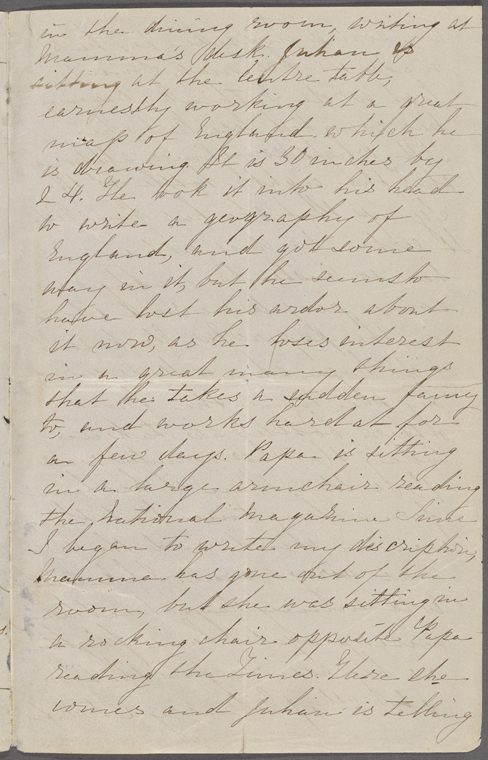 in the dining room, writing at
Mamma's desk. Julian is
sitting at the centre table,
earnestly working at a great
map of England which he
is drawing. It is 30 inches by
24. He took it into his head
to write a geography of
England, and got some
way in it, but he seems to
have lost his ardor about
it now, as he loses interest
in a great many things
that he takes a sudden fancy
to, and works hard at for
a few days. Papa is sitting
in a large armchair reading
the National Magazine Since
I began to write my discription,
Mamma has gone out of the
room, but she was sitting in
a rocking chair opposite Papa
reading the Times. Here she
comes and Julian is telling